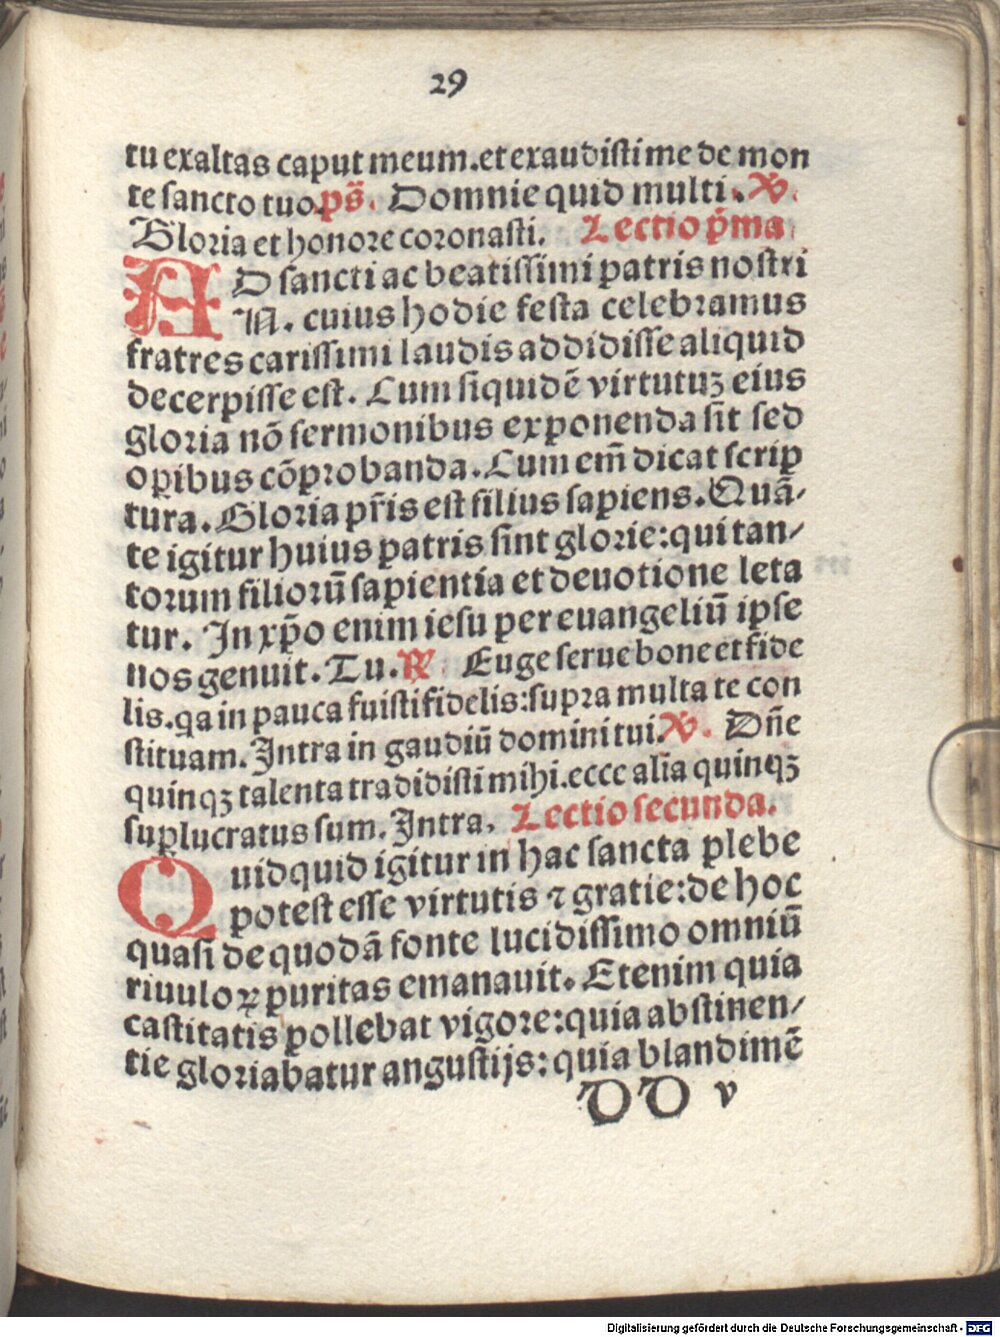 29
tu exaltas caput meum.et exaudisti me de mon
te sancto tuo.p̄s. Domnie quid multi. ℣.
Gloria et honore coronasti. Lectio p̄ma
AD sancti ac beatissimi patris nostri
N. cuius hodie festa celebramus
fratres carissimi laudis addidisse aliquid
decerpisse est. Cum siquidē virtutuꝫ eius
gloria nō sermonibus exponenda sit sed
oꝑibus cōprobanda. Cum em̄ dicat scrip
tura. Gloria pr̄is est filius sapiens. Quā/
te igitur huius patris sint glorie: qui tan/
torum filiorū sapientia et deuotione leta
tur. In xp̄o enim iesu per euangeliū ipse
nos genuit. Tu. ℟. Euge serue bone et fide
lis. qa in pauca fuisti fidelis: supra multa te con
stituam. Intra in gaudiū domini tui. ℣. Dn̄e
quinqꝫ talenta tradidisti mihi. ecce alīa quinqꝫ
suꝑlucratus sum. Intra. Lectio secunda.
Quidquid igitur in hac sancta plebe
potest esse virtutis ⁊ gratie: de hoc
quasi de quodā fonte lucidissimo omniū
riuuloꝝ puritas emanauit. Etenim quia
castitatis pollebat vigore: quia abstinen/
tie gloriabatur angustijs: quia blandimē
DD v
Digitalisierung gefördert durch die Deutsche Forschungsgemeinschaft - DFG